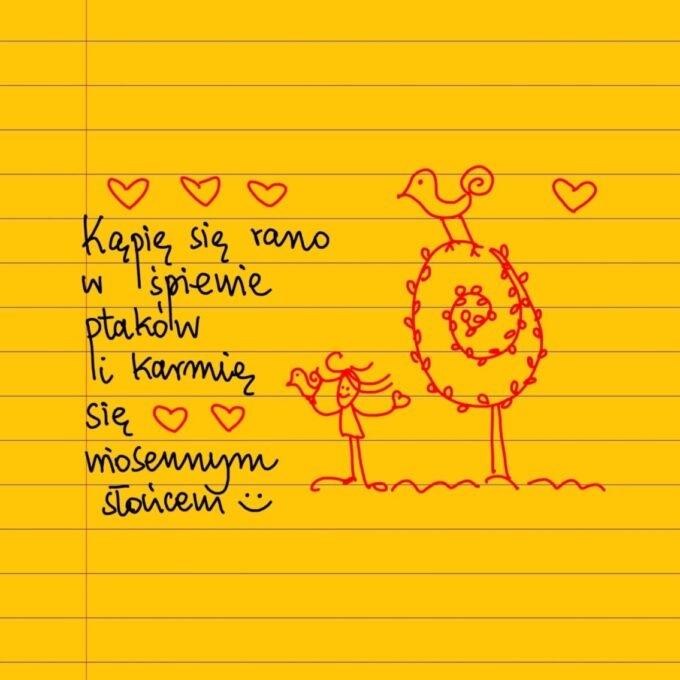 Kąpię się rano
w śpiewie
ptaków
i karmię
się
wiosennym
słońcem